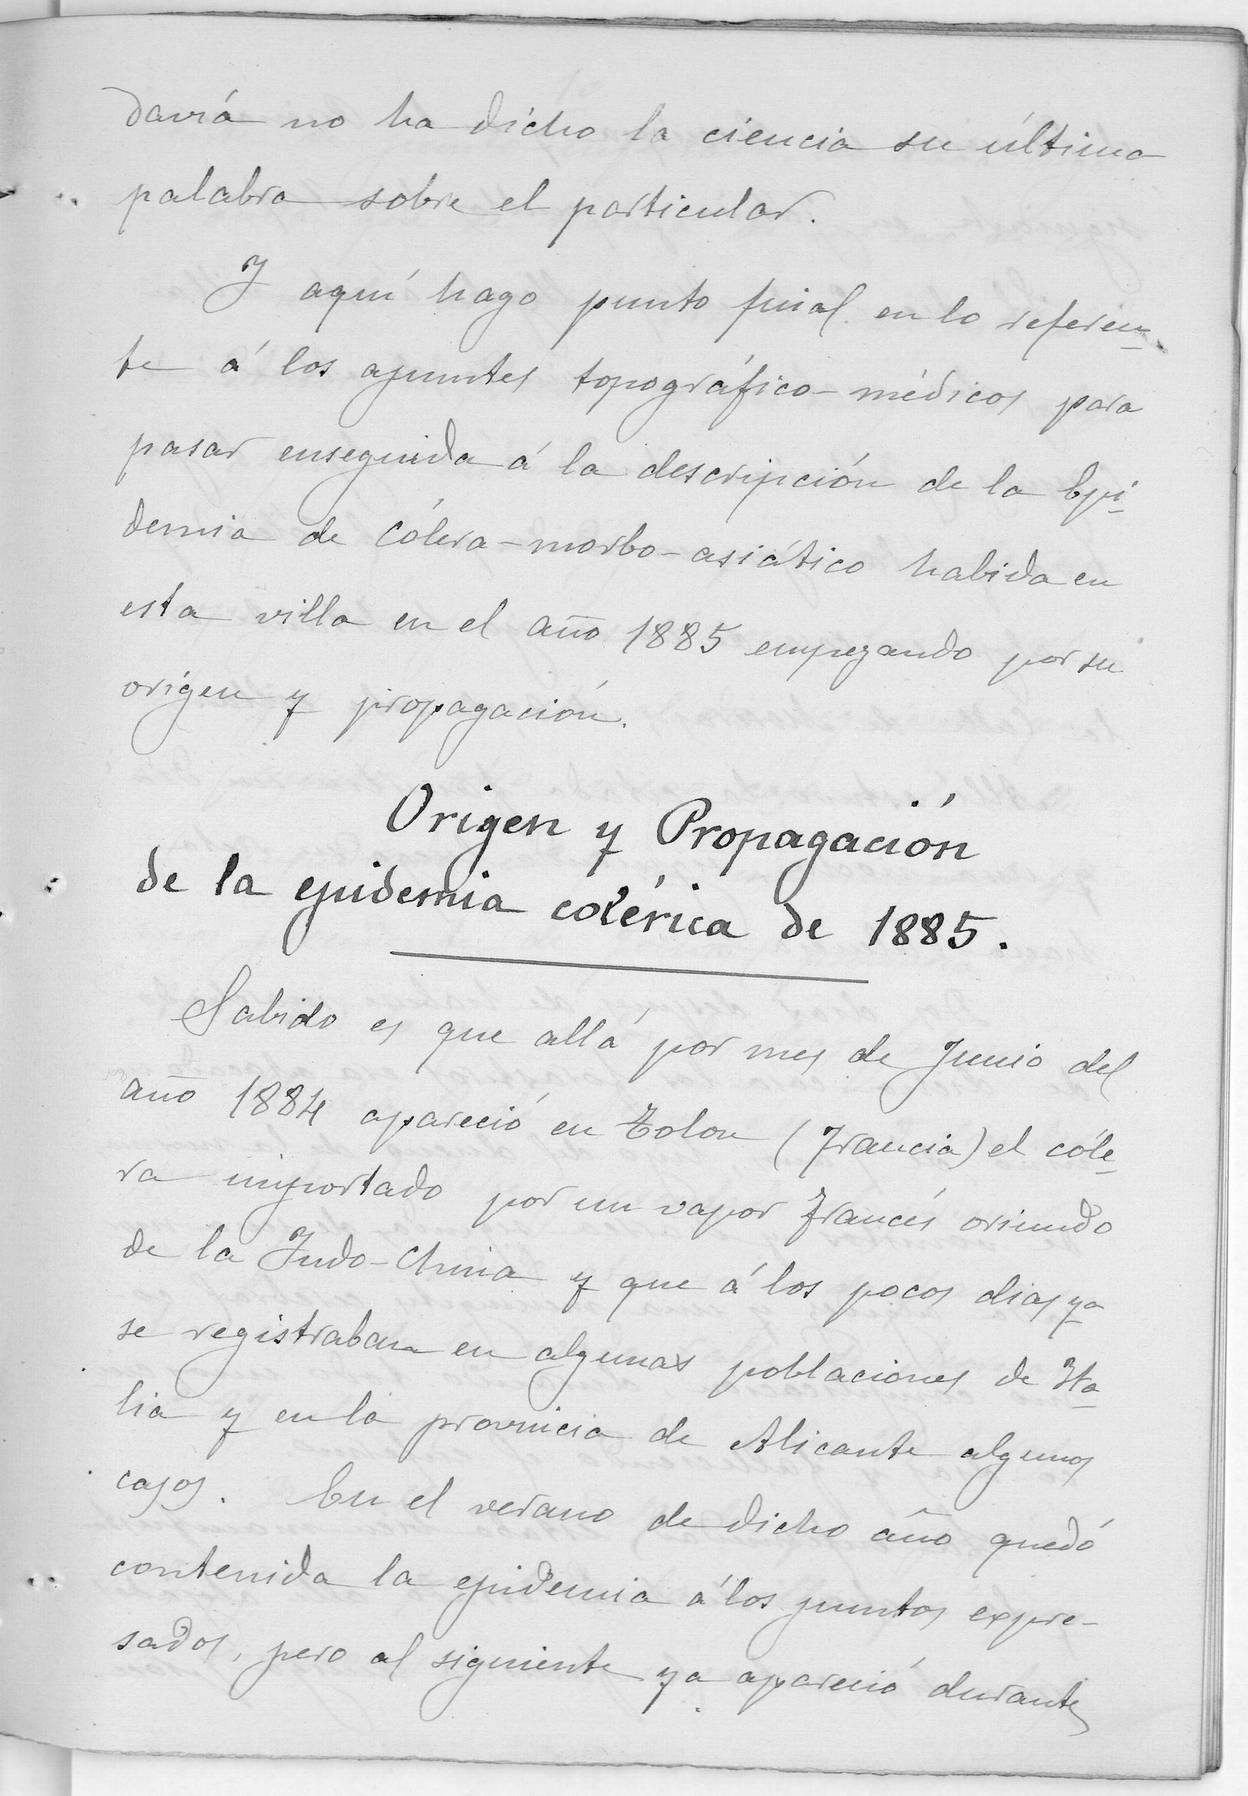 davía no ha dicho la ciencia su última
palabra sobre el particular.
Y aquí hago punto final en lo referen-
te á los apuntes topográfico-médicos para
pasar enseguida á la descripción de la Epi-
demia de Cólera-morbo-asiático habida en
esta villa en el año 1885 empezando por su
origen y propagación.
Origen y Propagación
de la epidemia colérica de 1885.
Sabido es que allá por mes de Junio del
año 1884 apareció en Tolon (Francia) el cóle-
ra importado por un vapor francés oriundo
de la Indo-China y que á los pocos dias ya
se registraban en algunas poblaciones de Ita-
lia y en la provincia de Alicante algunos
casos. En el verano de dicho año quedó
contenida la epidemia á los puntos expre-
sados, pero al siguiente ya apareció durante